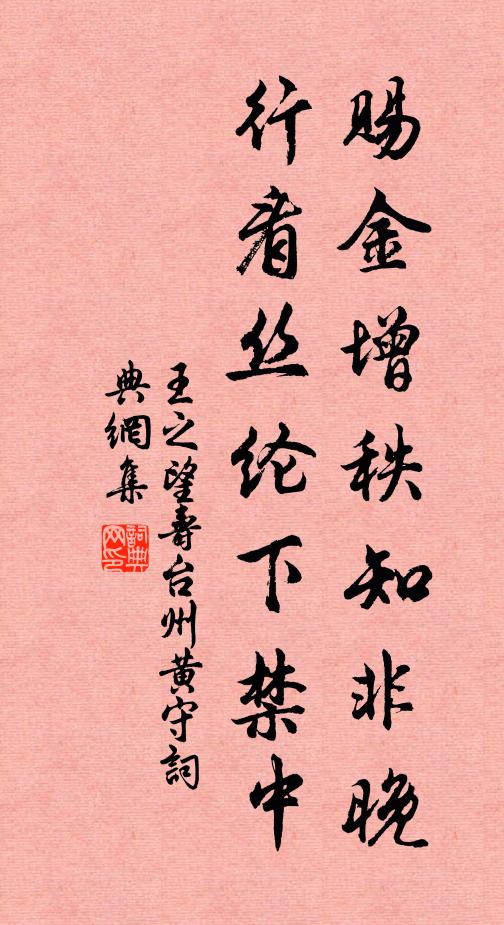 赐金增秩知非晚
行看丝纶下禁中
王之望寿台州黄守词
典網集
詞典网印